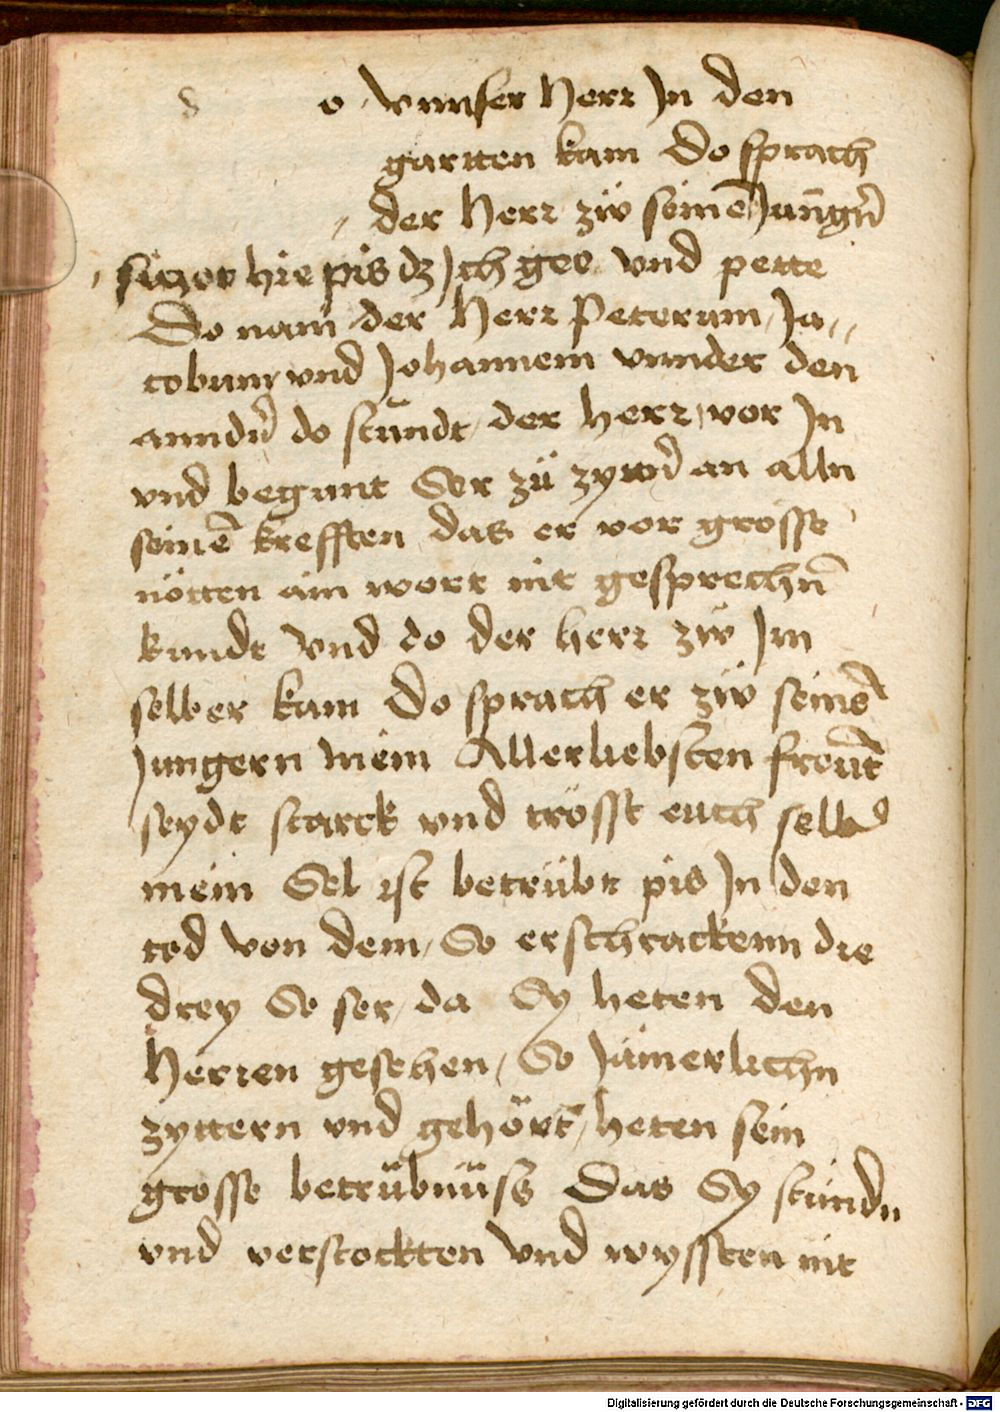 d o vnnser herr Jn den
gartten kam Do sprach
der herr zŭ seinē Jūngr̄n
sitzet hie pis dz Jch gee vnd pette
Do nam der herr Peterum, Ja⸗
cobum vnd Johannem vnnder den
anndn̄ do stŭndt der herr vor Jn
vnd begunt Ser zŭ zytn̄ an alln
seinē krefften das er vor grosse
nötten ain wort nit gesprechn̄
kundt vnd do der herr zŭ Jm
selber kam Do sprach er zŭ seinē
Jungern mein Allerliebsten freŭt
seydt starck vnd trösst euch selb
mein Sel ist betrŭbt pis Jn den
tod von dem, So erschrackenn die
drey So ser, da Sy heten den
herren gesehen, So Jamerlichn
zyttern vnd gehört, heten sein
grosse betrŭbnŭss Das Sy stŭndn
vnd verstockten vnd wyssten nit
Digitalisierung gefördert durch die Deutsche Forschungsgemeinschaft - DFG